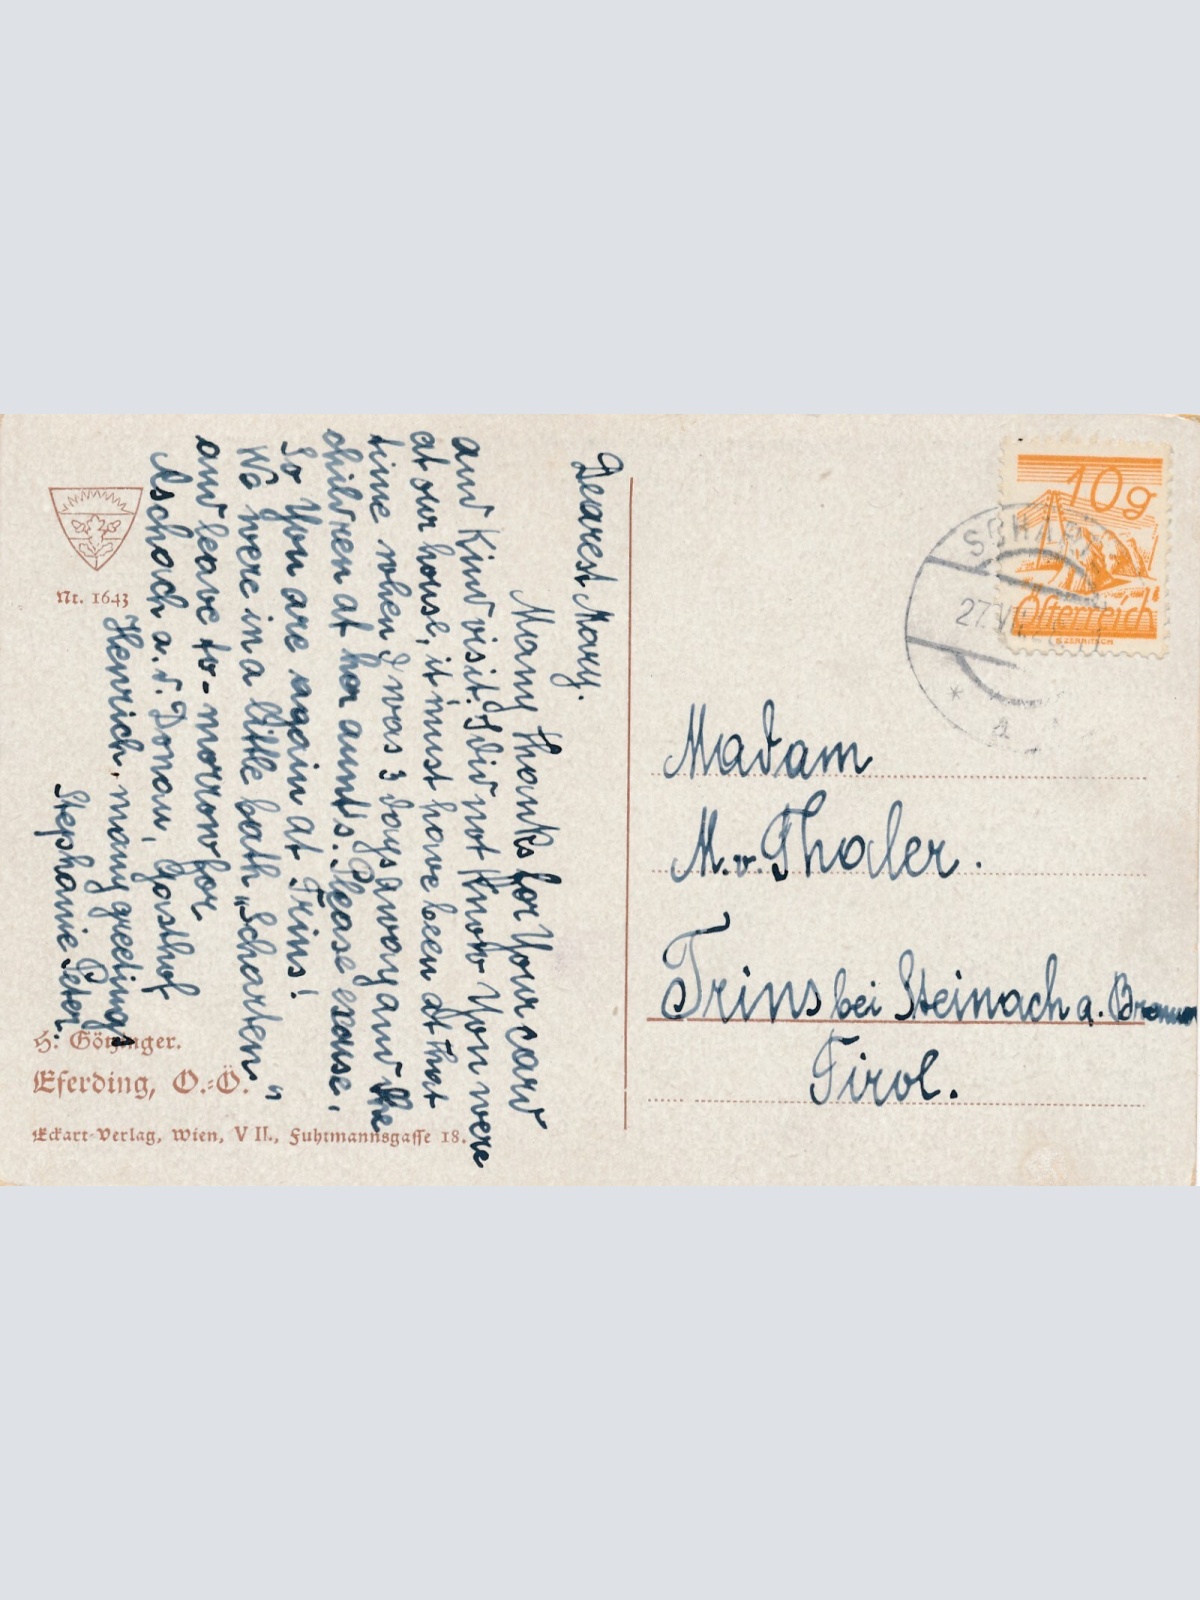 Dearest Mary.
Many thanks for Your card
and Kind visit! I did not Know You were
at our house, it must have been at that
time when I was 3 days away and the
children at her aunt's. Please excuse.
So You are again at Trins!
We were in a little bath „Scharten"
and leave to-morrow for
Aschach a. d. Donau, Gasthof
Henrich. many greetings
Stephanie Peter.
Nr. 1643
H. Götzinger.
Eferding, O.=Ö.
Eckart-Verlag, Wien, VII., Fuhrmannsgasse 18.
10g
Österreich
27.VII
a
Madam
M. v. Thaler.
Trins bei Steinach a. Brenner
Tirol.